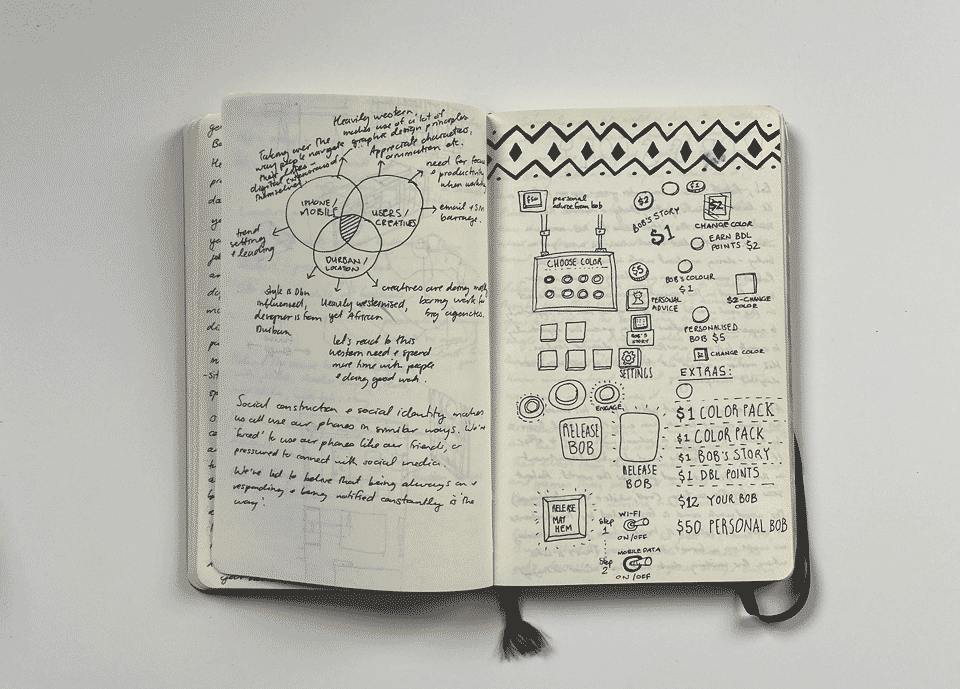 Heavily western,
makes use of a lot of
graphic design principles
Taking over the
way people navigate
their lives -
digital
themselves
Appreciate characters,
animation etc.
need for focus
+ productivity
when
email + SM
barrage.
IPHONE/
MOBILE
USERS/
CREATIVES
DURBAN/
LOCATION
trend
setting
+ leading
style is Dbn
influenced,
designer is from
Durban
Heavily westernised,
yet African
creatives are doing
boring work for
big agencies.
let's react to this
western need + spend
more time with people
+ doing good work.
Social construction + social identity makes
us all use our phones in similar ways. We're
'forced' to use our phones like our friends, or
pressured to connect with social media.
We're led to believe that being always on +
responding + being notified constantly is the
way!
$50
personal
advice from bob
CHOOSE COLOR
$2
$1
BOB'S STORY
$1
$2
CHANGE COLOR
EARN BDL
POINTS $2
$5
BOB'S COLOUR
$1
PERSONAL
ADVICE
$2-CHANGE
COLOR
BOB'S
STORY
PERSONALISED
BOB $5
CHANGE COLOR
SETTINGS
EXTRAS:
ENGAGE
RELEASE
BOB
RELEASE
BOB
$1 COLOR PACK
$1 COLOR PACK
$1 BOB'S STORY
$1 DBL POINTS
$12 YOUR BOB
$50 PERSONAL BOB
RELEASE
MAY
HEM
Step
1
WI-FI
ON/OFF
Step
2
MOBILE DATA
ON/OFF